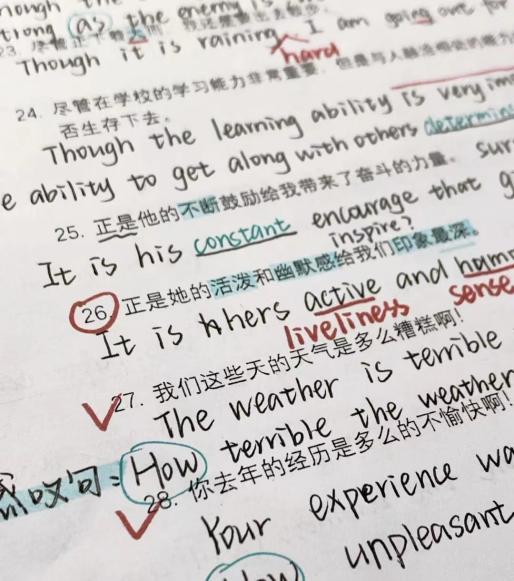 strong (as the enemy is
Though it is raining I am going out for
hard
24. 尽管在学校的学习能力非常重要，但是与人
否生存下去。
Though the learning ability is very im
e ability to get along with others determin
25. 正是他的不断鼓励给我带来了奋斗的力量。 sur
It is his constant encourage that g
inspire?
26. 正是她的活泼和幽默感给我们印象最深。
It is hers active and
liveliness sense
27. 我们这些天的天气是多么糟糕啊！
The weather is terrible
叹句: How terrible the weather
28. 你去年的经历是多么的不愉快啊！
Your experience wa
How unpleasant